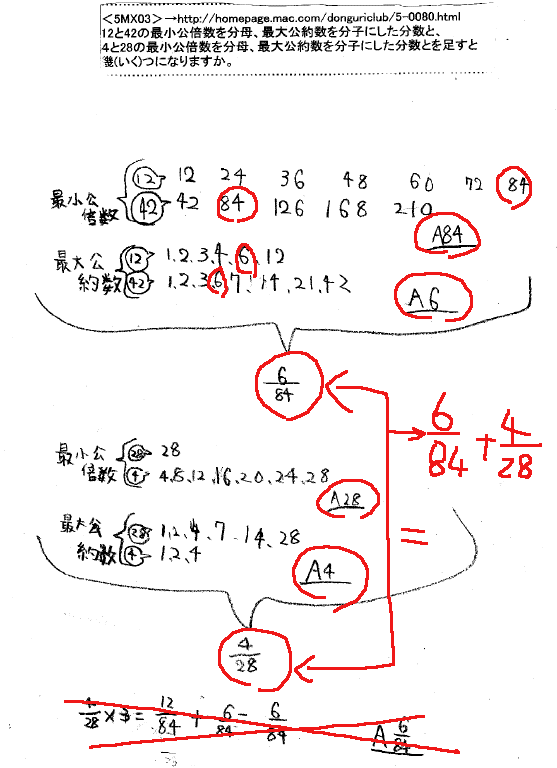 <5MX03>→http://homepage.mac.com/donguriclub/5-0080.html
12と42の最小公倍数を分母、最大公約数を分子にした分数と、
4と28の最小公倍数を分母、最大公約数を分子にした分数とを足すと
幾(いく)つになりますか。
最小公倍数
12 12 24 36 48 60 72 84
42 42 84 126 168 210
A84
最大公約数
12 1.2.3.4.6.12
42 1.2.3.6.7.14.21.42
A6
6/84
6/84+4/28
最小公倍数
28 28
4 4.8.12.16.20.24.28
A28
最大公約数
28 1.2.4.7.14.28
4 1.2.4
A4
=
4/28
4/28×3=12/84+6/84-6/84
A6/84